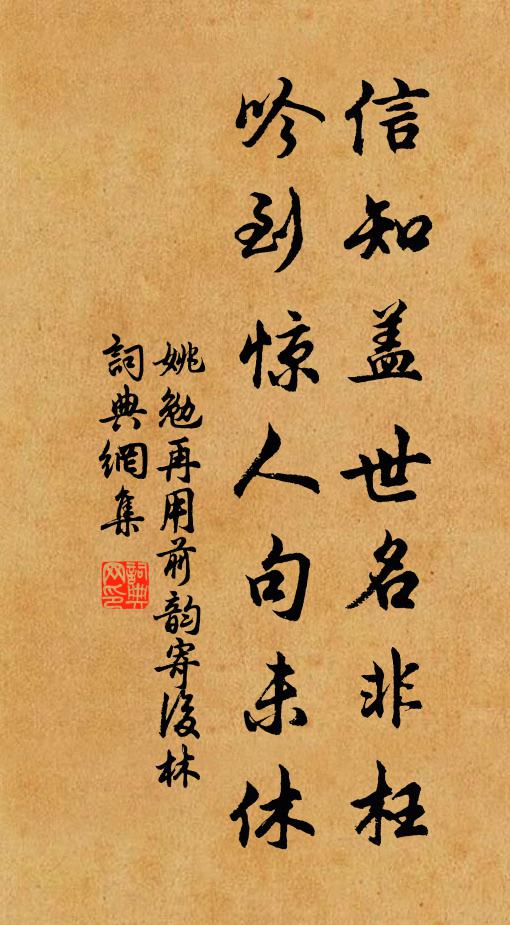 信知盖世名非枉
吟到惊人句未休
姚勉再用前韵寄後林
詞典網集
詞典网印